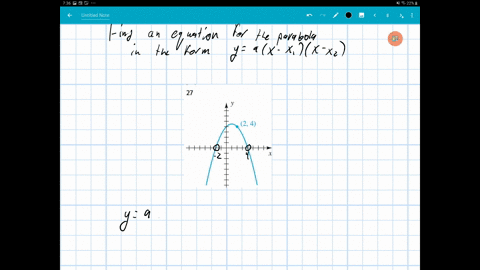 7:36
Untitled Note
22%
Find an equation for the parabola
in the form y = a(x - x₁)(x - x₂)
27
y
(2, 4)
-2 4 x
y = a